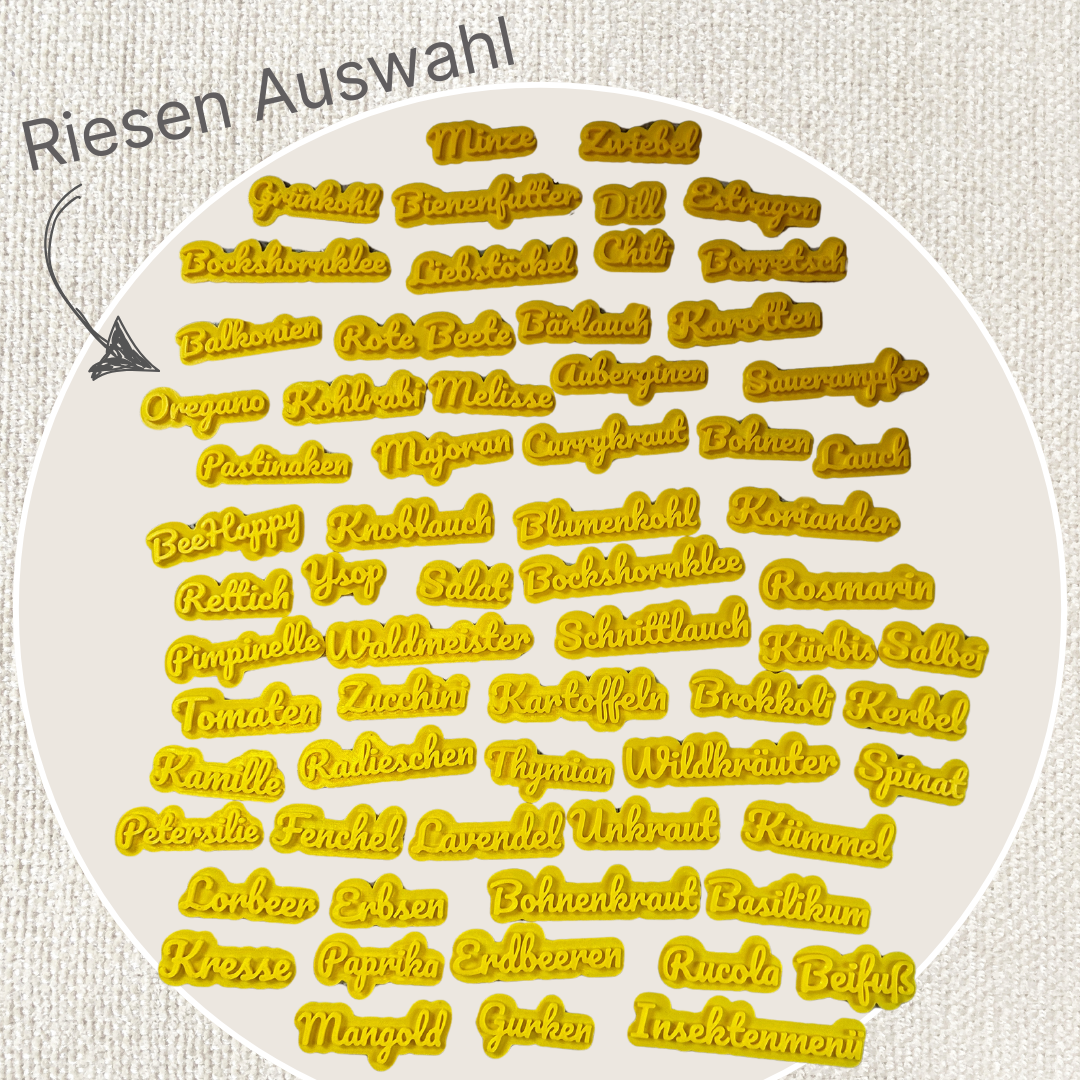 Riesen Auswahl
Minze Zwiebel
Grünkohl Bienenfutter Dill Estragon
Bockshornklee Liebstöckel Chili Borretsch
Balkonien Rote Beete Bärlauch Karotten
Oregano Kohlrabi Melisse Auberginen Sauerampfer
Pastinaken Majoran Currykraut Bohnen Lauch
BeeHappy Knoblauch Blumenkohl Koriander
Rettich Ysop Salat Bockshornklee Rosmarin
Pimpinelle Waldmeister Schnittlauch Kürbis Salbei
Tomaten Zucchini Kartoffeln Brokkoli Kerbel
Kamille Radieschen Thymian Wildkräuter Spinat
Petersilie Fenchel Lavendel Unkraut Kümmel
Lorbeer Erbsen Bohnenkraut Basilikum
Kresse Paprika Erdbeeren Rucola Beifuß
Mangold Gurken Insektenmenü